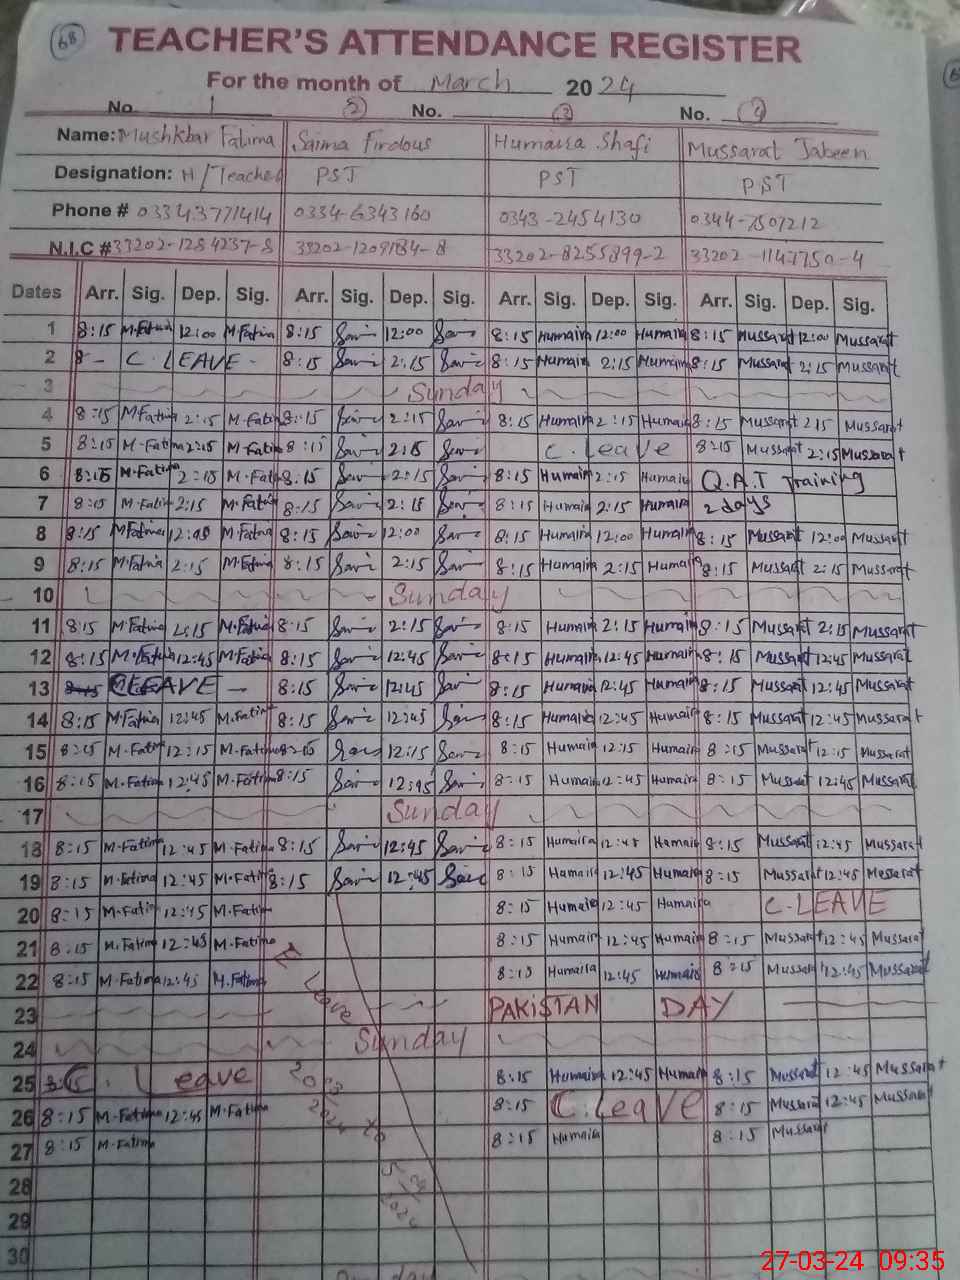 68
TEACHER'S ATTENDANCE REGISTER
For the month of March 2024
No. 1 2 No. 3 No. 4
Name: Mushkbar Fatima Saima Firdous Humaira Shafi Mussarat Jabeen
Designation: H/Teacher PST PST PST
Phone # 03343771414 0334-6343160 0343-2454130 0344-7507212
N.I.C # 33202-1284237-8 33202-1209184-8 33202-8255899-2 33202-1147750-4
Dates Arr. Sig. Dep. Sig. Arr. Sig. Dep. Sig. Arr. Sig. Dep. Sig. Arr. Sig. Dep. Sig.
1 8:15 M.Fatima 12:00 M.Fatima 8:15 12:00 8:15 Humaira 12:00 Humaira 8:15 Mussarat 12:00 Mussarat
2 8- C. LEAVE - 8:15 2:15 8:15 Humaira 2:15 Humaira 8:15 Mussarat 2:15 Mussarat
3 Sunday
4 8:15 M.Fatima 2:15 M.Fatima 8:15 2:15 8:15 Humaira 2:15 Humaira 8:15 Mussarat 2:15 Mussarat
5 8:15 M.Fatima 2:15 M.Fatima 8:15 2:15 C. Leave 8:15 Mussarat 2:15 Mussarat
6 8:15 M.Fatima 2:15 M.Fatima 8:15 2:15 8:15 Humaira 2:15 Humaira Q.A.T Training
7 8:15 M.Fatima 2:15 M.Fatima 8:15 2:15 8:15 Humaira 2:15 Humaira 2 days
8 8:15 M.Fatima 12:00 M.Fatima 8:15 12:00 8:15 Humaira 12:00 Humaira 8:15 Mussarat 12:00 Mussarat
9 8:15 M.Fatima 2:15 M.Fatima 8:15 2:15 8:15 Humaira 2:15 Humaira 8:15 Mussarat 2:15 Mussarat
10 Sunday
11 8:15 M.Fatima 2:15 M.Fatima 8:15 2:15 8:15 Humaira 2:15 Humaira 8:15 Mussarat 2:15 Mussarat
12 8:15 M.Fatima 12:45 M.Fatima 8:15 12:45 8:15 Humaira 12:45 Humaira 8:15 Mussarat 12:45 Mussarat
13 C LEAVE - 8:15 12:45 8:15 Humaira 12:45 Humaira 8:15 Mussarat 12:45 Mussarat
14 8:15 M.Fatima 12:45 M.Fatima 8:15 12:45 8:15 Humaira 12:45 Humaira 8:15 Mussarat 12:45 Mussarat
15 8:15 M.Fatima 12:15 M.Fatima 8:15 12:15 8:15 Humaira 12:15 Humaira 8:15 Mussarat 12:15 Mussarat
16 8:15 M.Fatima 12:45 M.Fatima 8:15 12:45 8:15 Humaira 12:45 Humaira 8:15 Mussarat 12:45 Mussarat
17 Sunday
18 8:15 M.Fatima 12:45 M.Fatima 8:15 12:45 8:15 Humaira 12:45 Humaira 8:15 Mussarat 12:45 Mussarat
19 8:15 M.Fatima 12:45 M.Fatima 8:15 12:45 8:15 Humaira 12:45 Humaira 8:15 Mussarat 12:45 Mussarat
20 8:15 M.Fatima 12:45 M.Fatima 8:15 Humaira 12:45 Humaira C.LEAVE
21 8:15 M.Fatima 12:45 M.Fatima 8:15 Humaira 12:45 Humaira 8:15 Mussarat 12:45 Mussarat
22 8:15 M.Fatima 12:45 M.Fatima Leave 8:15 Humaira 12:45 Humaira 8:15 Mussarat 12:45 Mussarat
23 PAKISTAN DAY
24 Sunday
25 C. Leave 8:15 Humaira 12:45 Humaira 8:15 Mussarat 12:45 Mussarat
26 8:15 M.Fatima 12:45 M.Fatima 2024 to 8:15 C.Leave 8:15 Mussarat 12:45 Mussarat
27 8:15 M.Fatima 8:15 Humaira 8:15 Mussarat
28
29
30
27-03-24 09:35